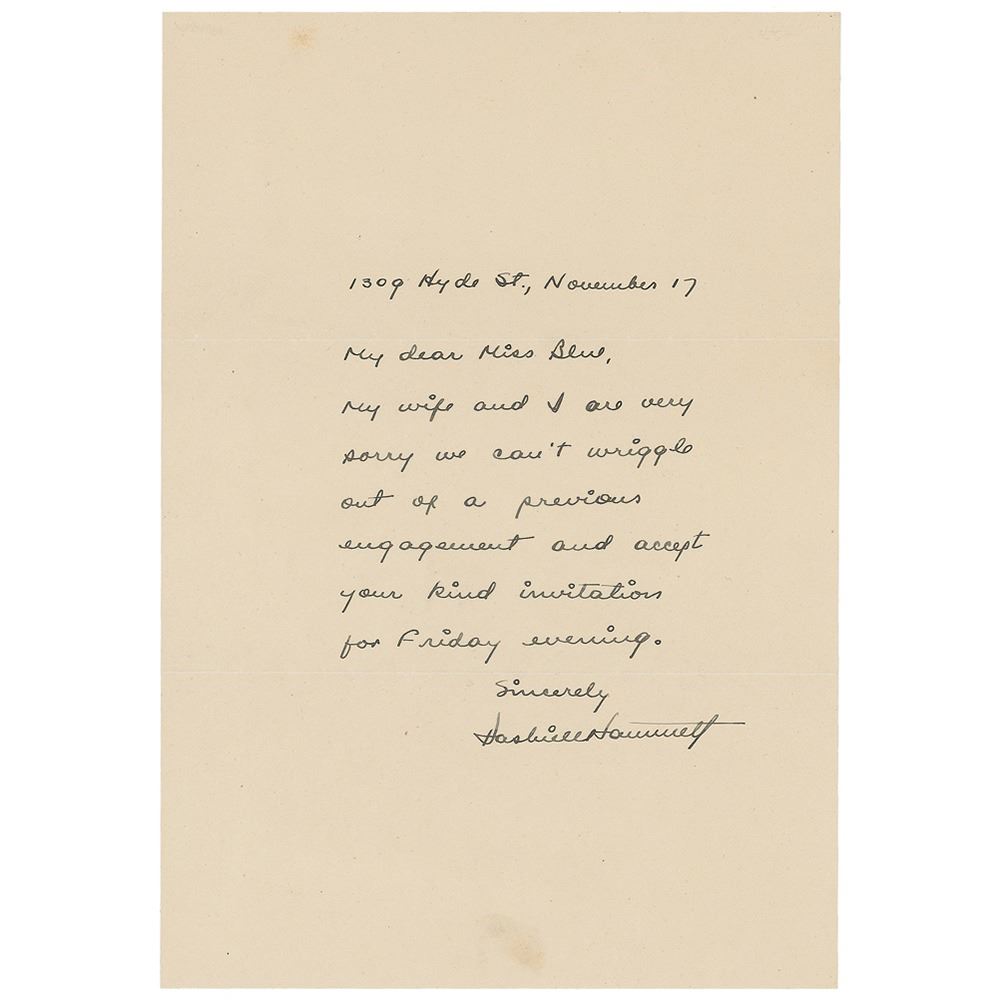 1309 Hyde St., November 17
My dear Miss Blue,
My wife and I are very
sorry we can't wriggle
out of a previous
engagement and accept
your kind invitation
for Friday evening.
Sincerely
Dashiell Hammett